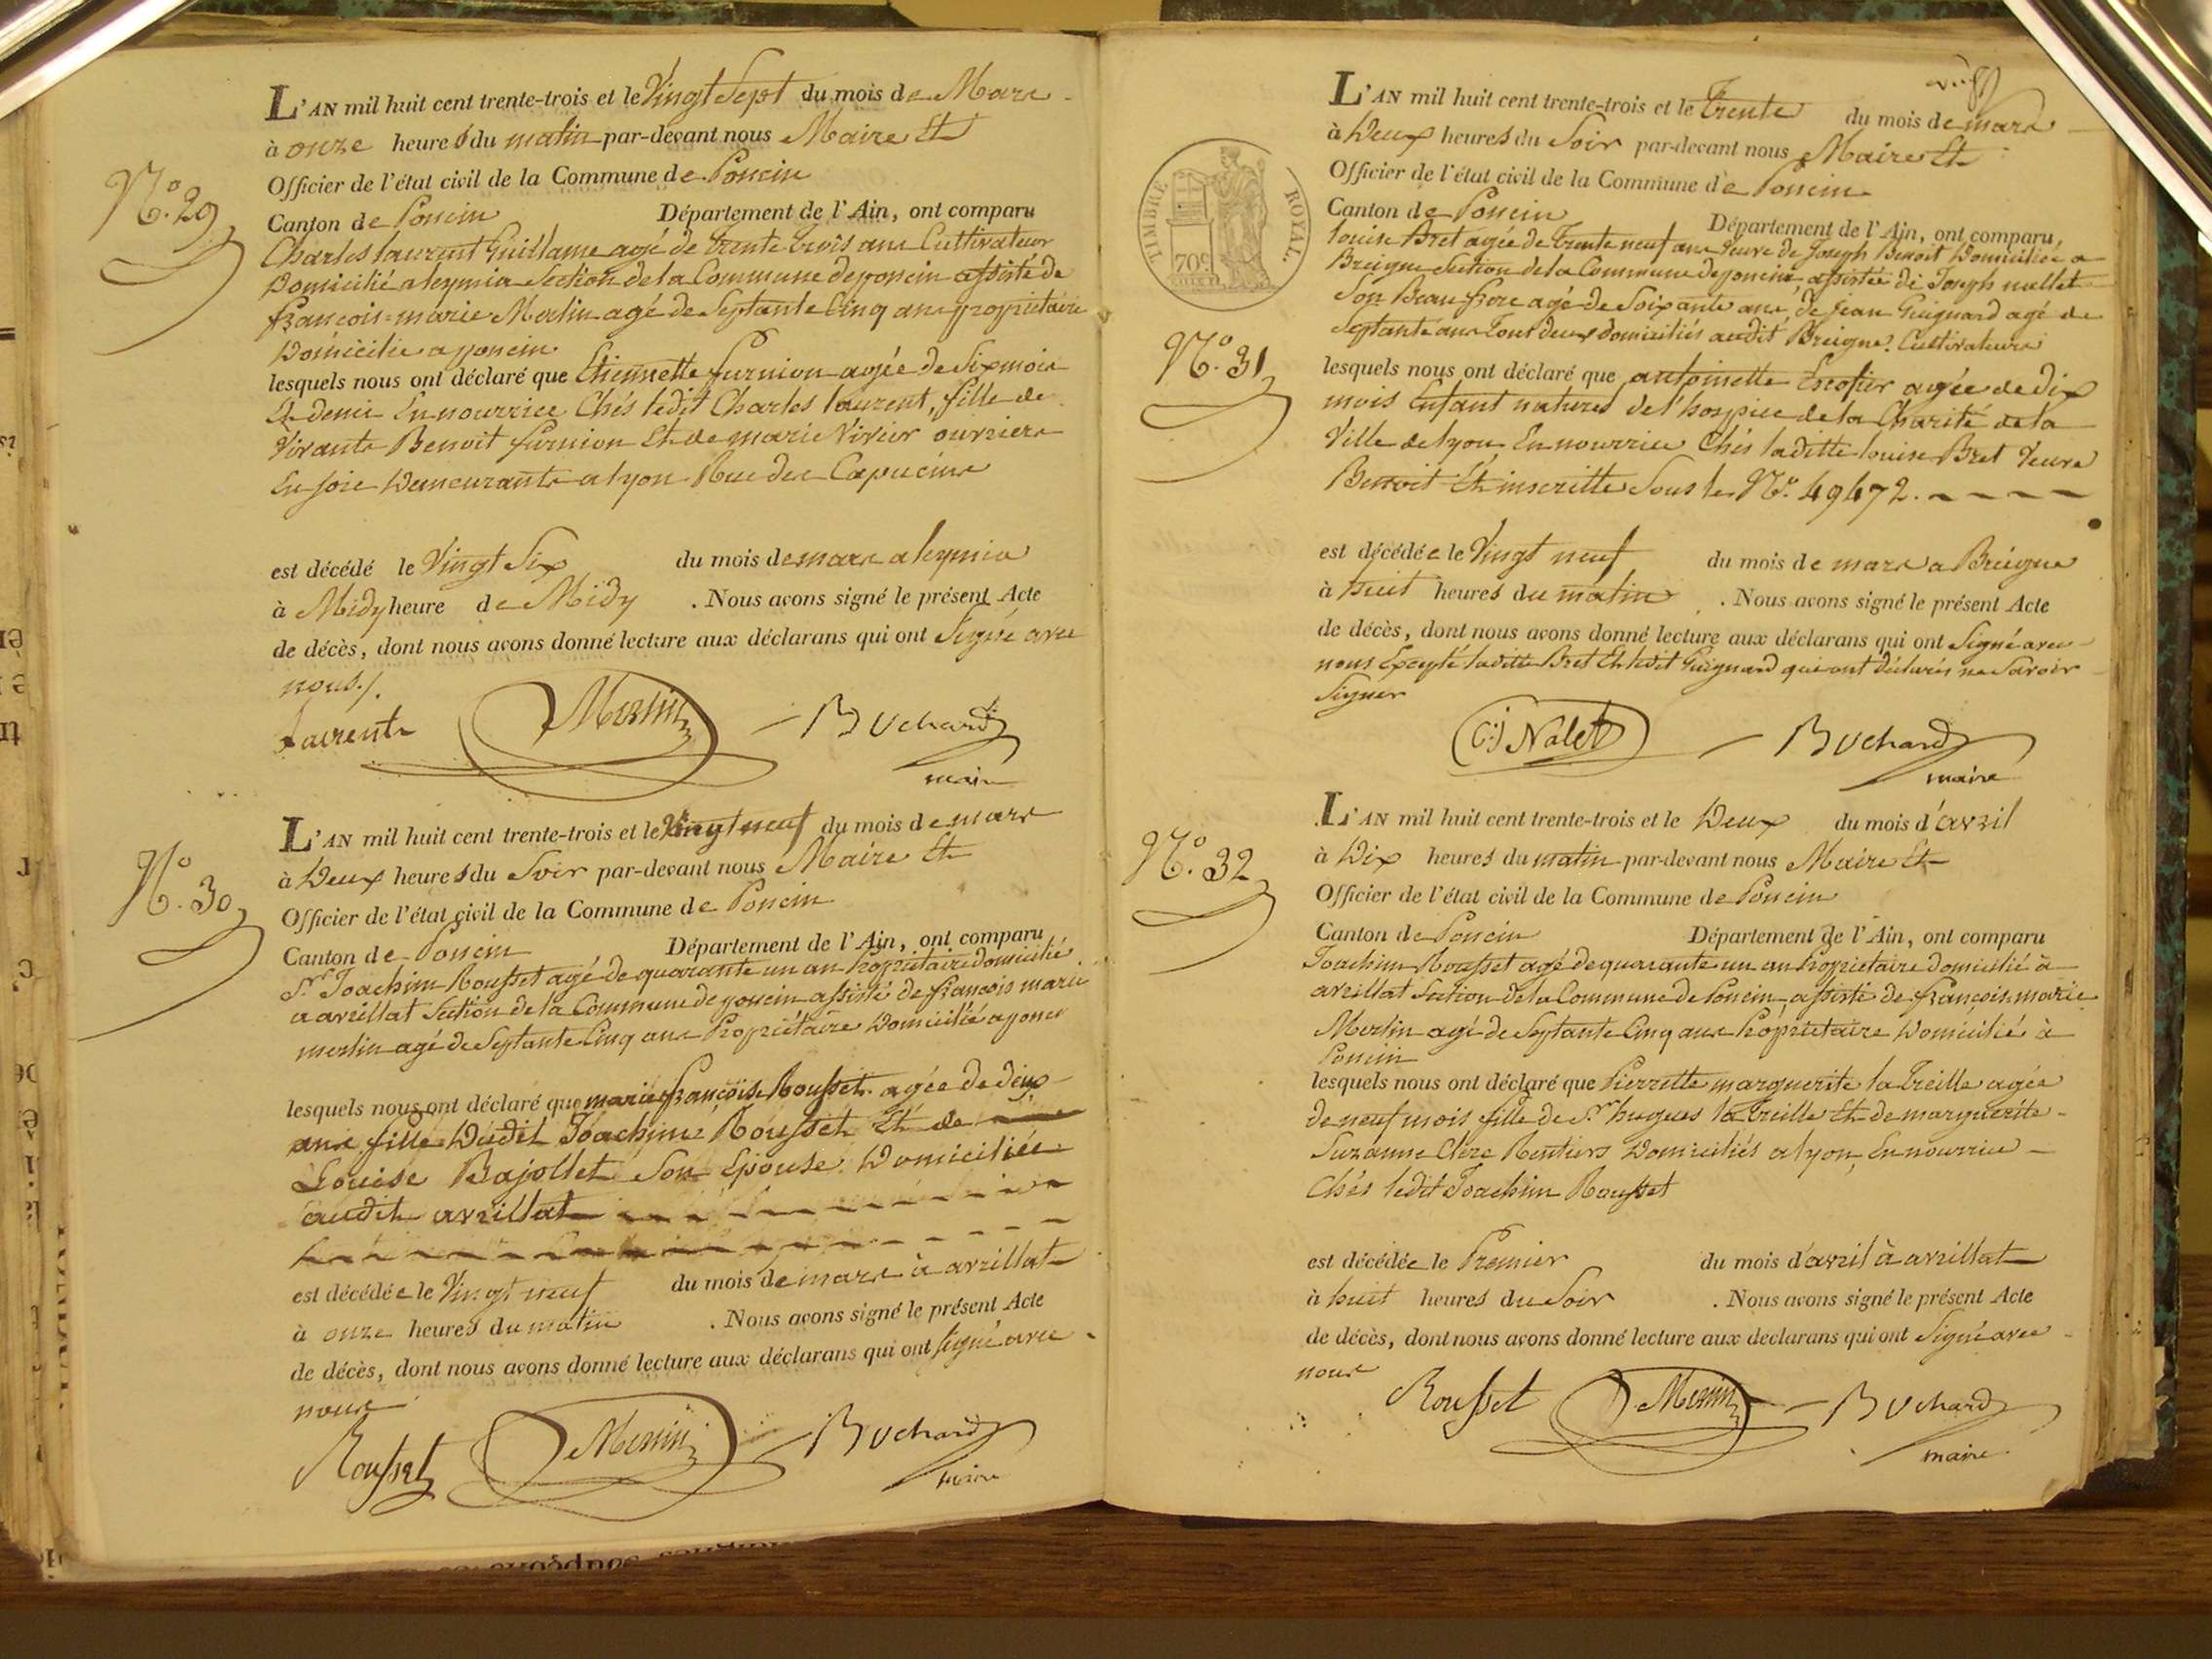 L'AN mil huit cent trente-trois et le Vingt Sept du mois de Mars
à onze heures du matin par-devant nous Maire Et
Officier de l'état civil de la Commune de Poncin
Canton de Poncin Département de l'Ain, ont comparu
N.º 29
Charles laurent Guillame agé de trente trois ans Cultivateur
Domicilié a leymia Section de la Commune de poncin assisté de
françois=marie Merlin agé de Septante Cinq ans propriétaire
Domicilié a poncin
lesquels nous ont déclaré que Etiennette furnion agée de Six mois
Et demi En nourrice Chés ledit Charles laurent, fille de
Vivants Benoit furnion Et de marie Vivier ouvriers
En soie Demeurants a lyon Rue des Capucins
est décédé le Vingt Six du mois de mars a leymia
à Midy heure de Midy . Nous avons signé le présent Acte
de décès, dont nous avons donné lecture aux déclarans qui ont Signé avec
nous./.
Laurent Merlin Buchard
maire
L'AN mil huit cent trente-trois et le Vingt neuf du mois de mars
à Deux heures du Soir par-devant nous Maire Et
N.º 30
Officier de l'état civil de la Commune de Poncin
Canton de Poncin Département de l'Ain, ont comparu
Sr. Joachim Rousset agé de quarante un an Propriétaire domicilié
a avrillat Section de la Commune de poncin assisté de françois marie
merlin agé de Septante Cinq ans Propriétaire Domicilié a poncin
lesquels nous ont déclaré que marie françoise Rousset agée de deux
ans fille Dudit Joachim Rousset Et de
Louise Bajollet Son Epouse Domiciliés
audit avrillat
est décédée le Vingt neuf du mois de mars à avrillat
à onze heures du matin . Nous avons signé le présent Acte
de décès, dont nous avons donné lecture aux déclarans qui ont signé avec
nous
Rousset Merlin Buchard
maire
L'AN mil huit cent trente-trois et le Trente du mois de mars
à Deux heures du Soir par-devant nous Maire Et
Officier de l'état civil de la Commune de Poncin
TIMBRE ROYAL.
70c
Canton de Poncin Département de l'Ain, ont comparu,
louise Bret agée de Trente neuf ans Veuve de Joseph Benoit Domiciliée a
Breigne Section de la Commune de poncin, assistée de Joseph nallet
Son Beau frere agé de Soixante ans, de jean Guignard agé de
Septante ans Tout deux domiciliés audit Breigne. Cultivateurs
N.º 31
lesquels nous ont déclaré que antoinette Escofier agée de dix
mois Enfant naturel de l'hospice de la Charité de la
Ville de lyon En nourrice Chés laditte louise Bret Veuve
Benoit Et inscritte Sous le N.º 49472.
est décédée le Vingt neuf du mois de mars a Breigne
à huit heures du matin . Nous avons signé le présent Acte
de décès, dont nous avons donné lecture aux déclarans qui ont Signé avec
nous Excepté laditte Bret Et ledit Guignard qui ont déclarés ne Savoir
Signer
Nalet Buchard
maire
L'AN mil huit cent trente-trois et le Deux du mois d'avril
à Dix heures du matin par-devant nous Maire Et
N.º 32
Officier de l'état civil de la Commune de Poncin
Canton de Poncin Département de l'Ain, ont comparu
Joachim Rousset agé de quarante un an Propriétaire domicilié à
avrillat Section de la Commune de Poncin assisté de françois marie
Merlin agé de Septante Cinq ans Propriétaire Domicilié à
Poncin
lesquels nous ont déclaré que Pierrette marguerite la Treille agée
de neuf mois fille de Sr. hugues la Treille Et de marguerite
Suzanne Clerc Rentiers Domiciliés a lyon, En nourrice
Chés ledit Joachim Rousset
est décédée le Premier du mois d'avril à avrillat
à huit heures du Soir . Nous avons signé le présent Acte
de décès, dont nous avons donné lecture aux declarans qui ont Signé avec
nous
Rousset Merlin Buchard
maire